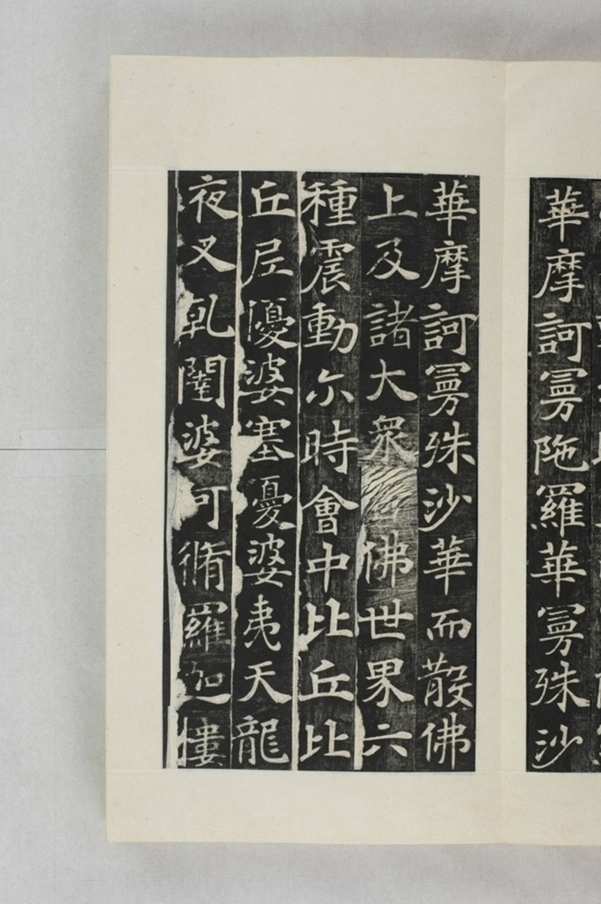 華摩訶曼陁羅華曼殊沙
華摩訶曼殊沙華而散佛
上及諸大衆佛世界六
種震動尒時會中比丘比
丘尼優婆塞優婆夷天龍
夜叉乹闥婆阿脩羅迦樓